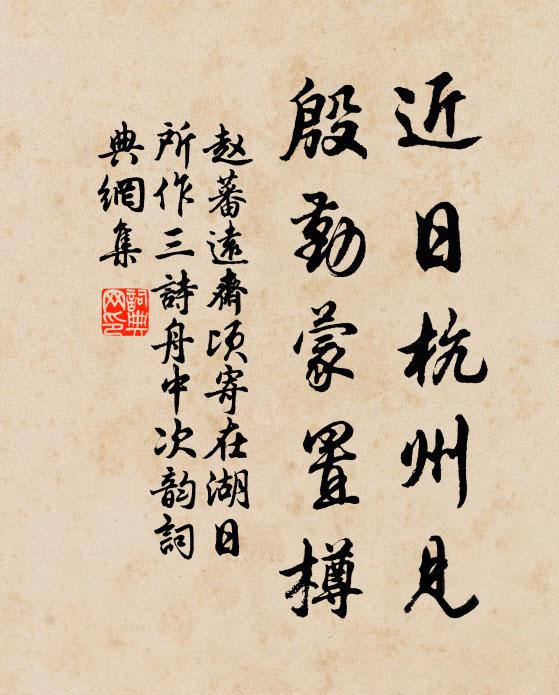 近日杭州見
殷勤蒙置樽
赵蕃遠齋頃寄在湖日
所作三詩舟中次韵詞
典網集
詞典网印